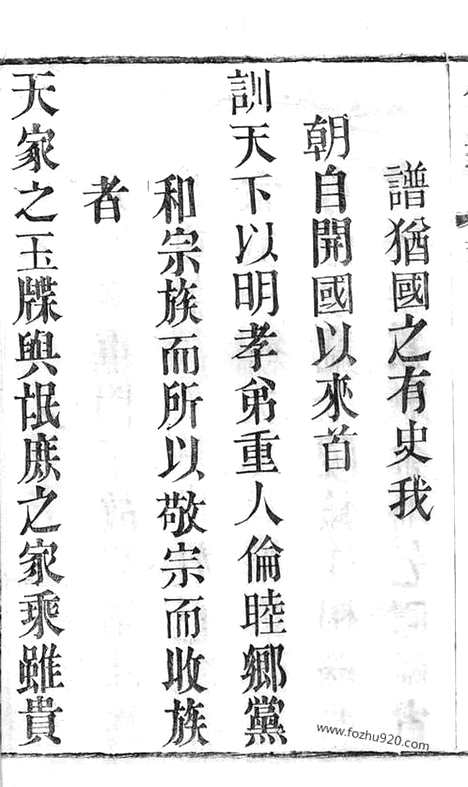 譜猶國之有史我
朝自開國以來首
訓天下以明孝弟重人倫睦鄉黨
和宗族而所以敬宗而收族
者
天家之玉牒與氓庶之家乘雖貴
www.fozhu920.com